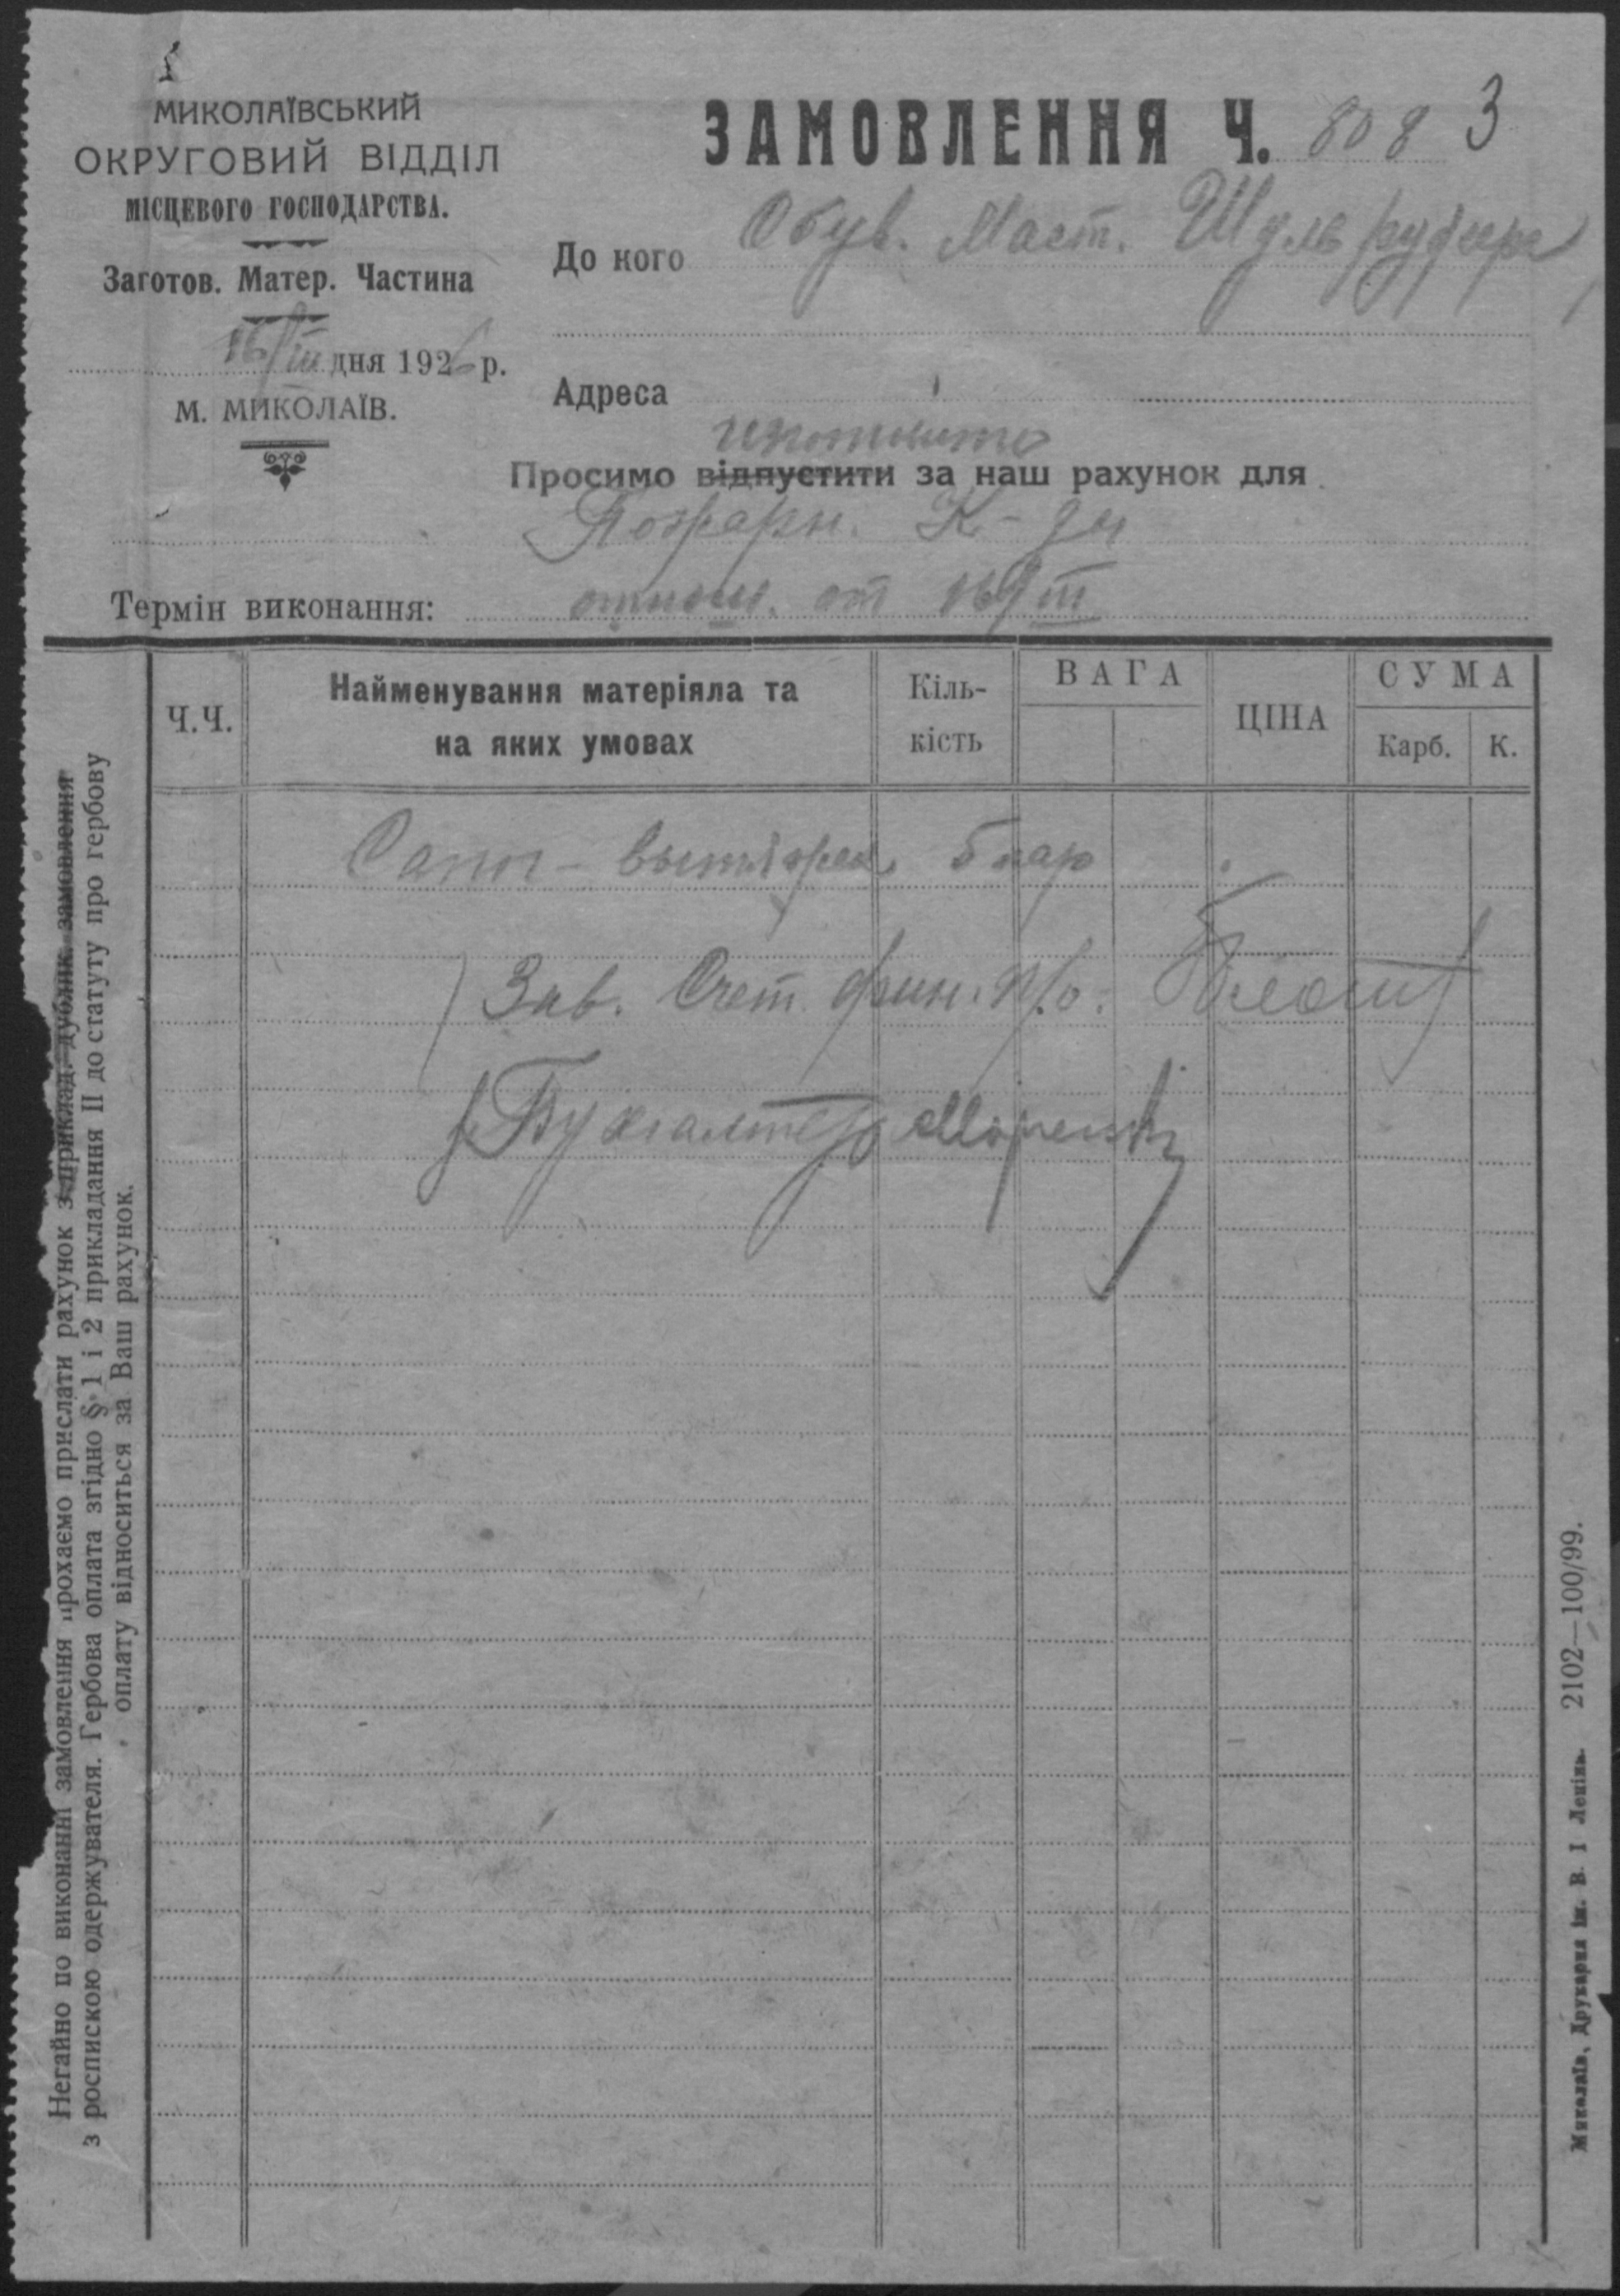 МИКОЛАЇВСЬКИЙ
ОКРУГОВИЙ ВІДДІЛ
МІСЦЕВОГО ГОСПОДАРСТВА.
Заготов. Матер. Частина
16/III дня 1926 р.
М. МИКОЛАЇВ.
ЗАМОВЛЕННЯ Ч. 808
3
До кого Обув. Маст.
Адреса
Просимо відпустити за наш рахунок для
Пожарн. К-ды
Термін виконання: от 16/III
Ч.Ч.
Найменування матеріяла та на яких умовах
Кіль-кість
ВАГА
ЦІНА
СУМА
Карб.
К.
Сапог - вытяжек 5 пар
Зав. Счет. фин. п/о.
Бухгалтер
Негайно по виконанні замовлення прохаємо прислати рахунок з приклад. дублик. замовлення
з роспискою одержувателя. Гербова оплата згідно § 1 і 2 прикладання II до статуту про гербову
оплату відноситься за Ваш рахунок.
Миколаїв, Друкарня ім. В. І Леніна. 2102—100/99.